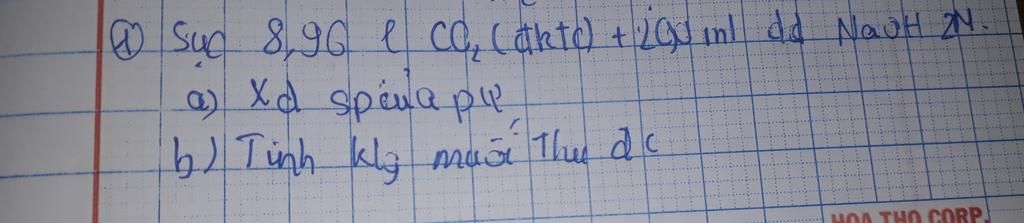 ① Sục 8,96 l CO₂ (đktc) + 200 ml dd NaOH 2M.
a) Xđ sp của pứ
b) Tính klg muối thu đc
HOA THO CORP.